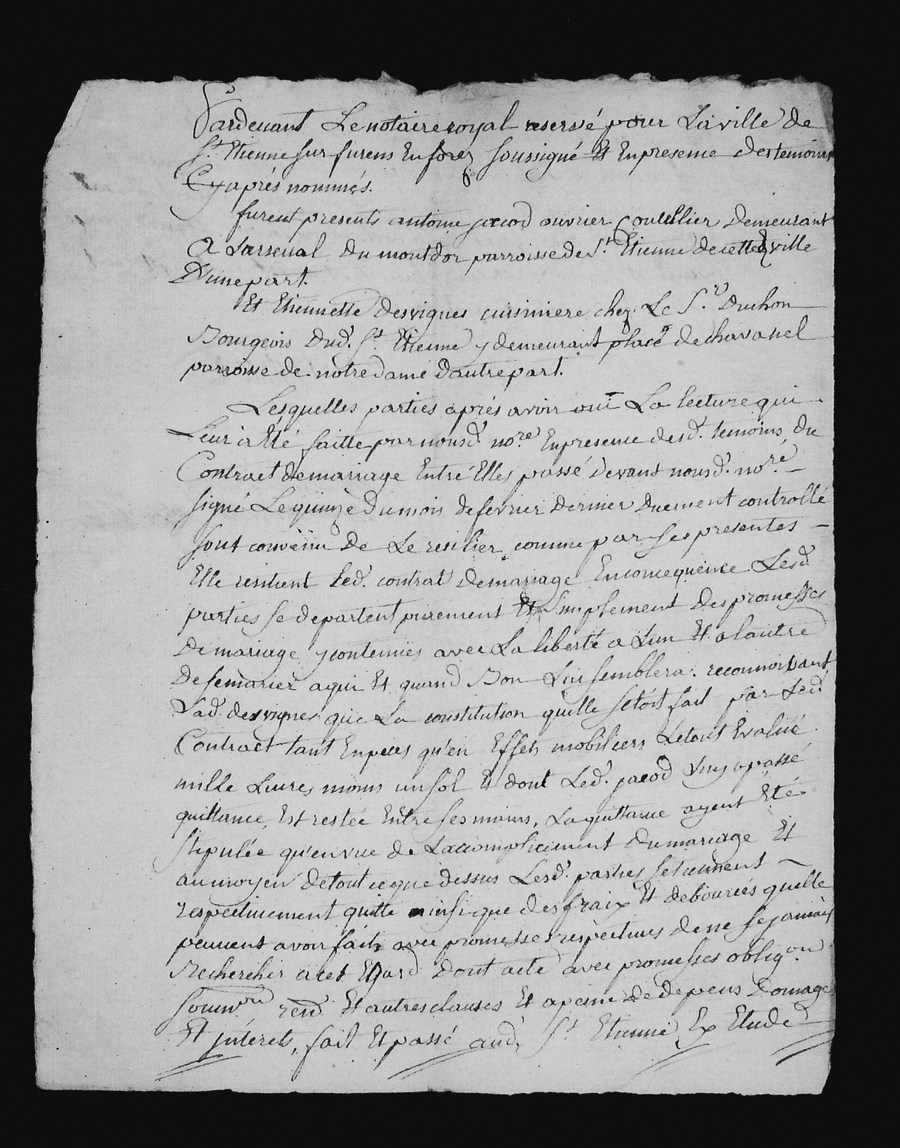 Pardevant Le notaire royal reservé pour La ville de
St. Etienne sur furens En forez soussigné Et En presence des temoins
Cy aprés nommés.
furent presents antoine jacod ouvrier Coutellier demeurant
a Larsenal du montdor parroisse de St. Etienne de cette ville
D'une part.
Et Etiennette desvignes cuisiniere chez Le Sr. Duchon
Bourgeois dud. St. Etienne y demeurant place de chavanel
parroisse de notre dame d'autre part.
Lesquelles parties aprés avoir oui La lecture qui
Leur à Eté faitte par nousd. nore En presence desd. temoins du
Contract de mariage Entré Elles passé devant nousd. noré
signé Le quinze du mois de fevrier dernier duement controllé
sont convenu de Le resilier comme par ses presentes
Elle resilient Led. contrat de mariage En consequence Lesd.
parties se departent purement Et simplement des promesses
de mariage y contenües avec La liberté a L'un Et a lautre
de se marier a qui Et quand Bon Lui semblera. reconnoissant
Lad. desvignes que La constitution quelle setoit fait par Led.
Contract tant En pieces qu'en Effets mobiliers Letout Evalué
mille Livres moins un sol Et dont Led. jacod Luy a passé
quittance, Est restée Entre ses mains, La quittance ayent Eté
stipulée qu'en vue de L'accomplicement du mariage Et
au moyen de tout ce que dessus Lesd. parties se tiennent
respectivement quitte ainsi que des fraix Et debourcés quelle
peuvent avoir faits avec promesses respectives de ne se jamais
Rechercher a cet Egard dont acte avec promesses obligon
soumon rend Et autres clauses Et a peine de depens Domages
Et jnterets, fait Et passé aud. St. Etienne Ex Etude